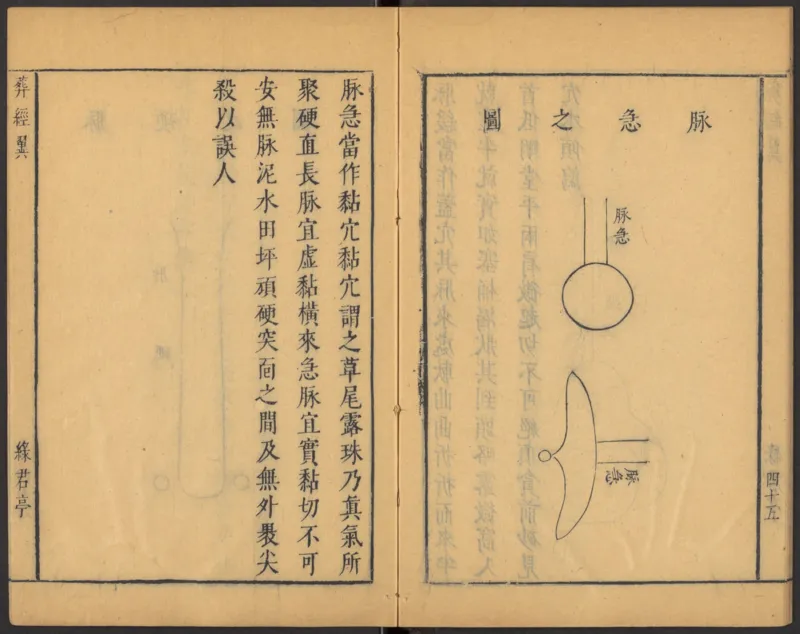 脉急之圖
脉急
脉急
葬經翼
四十五
脉急當作黏穴黏穴謂之草尾露珠乃眞氣所
聚硬直長脉宜虛黏橫來急脉宜實黏切不可
安無脉泥水田坪頑硬突面之間及無外㬥尖
殺以誤人
葬經翼
綠君亭